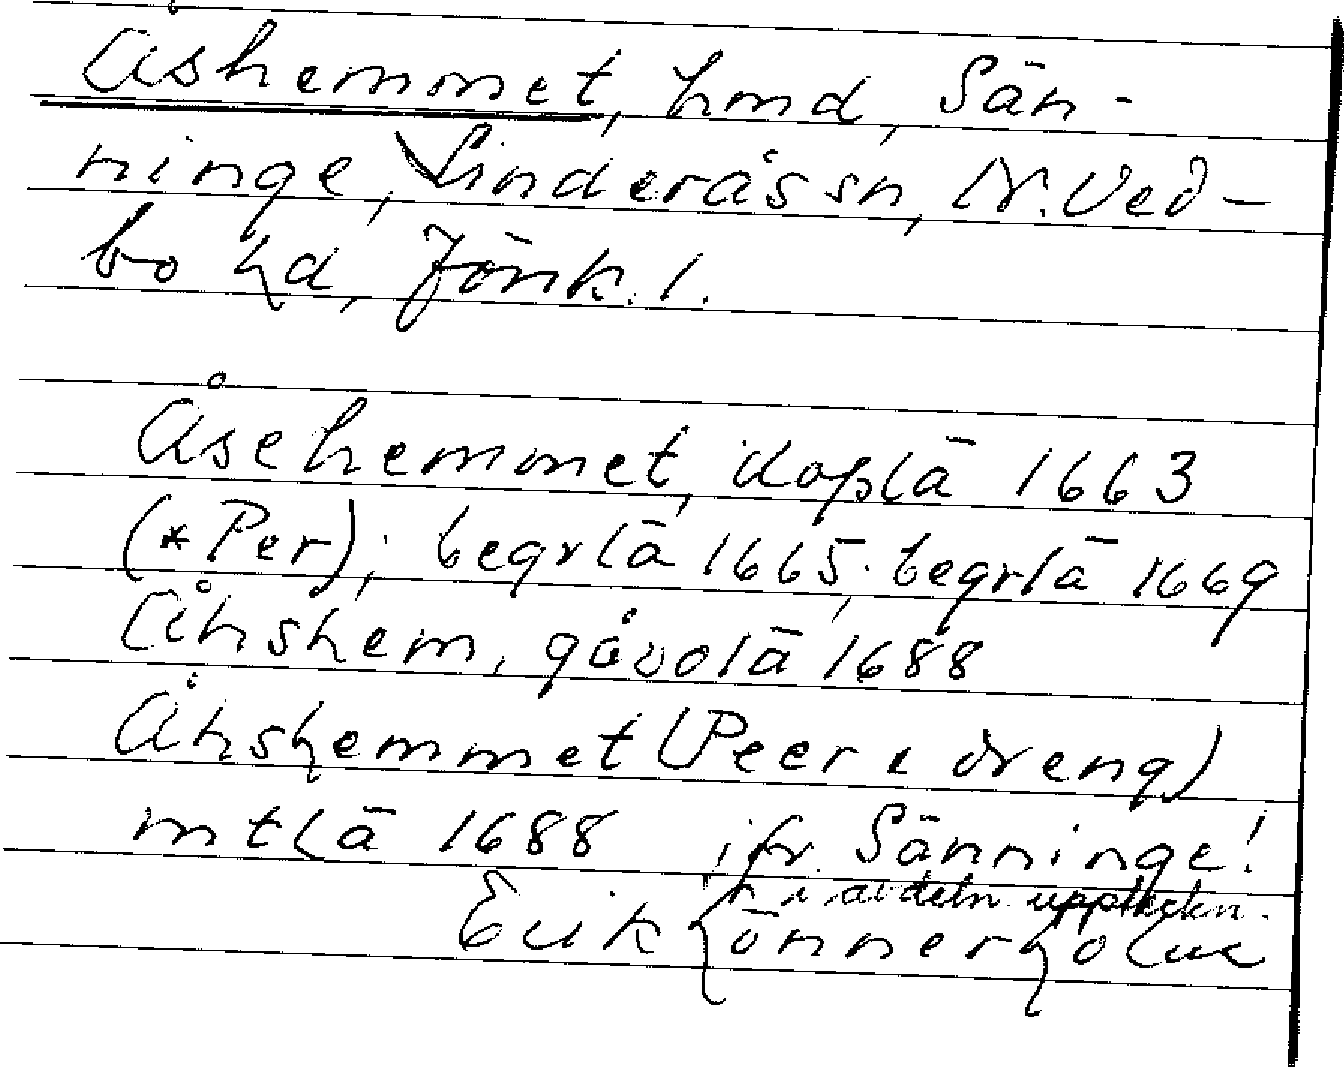 Åshemmet, hmd, Sän-
ninge, Linderås sn, N. Ved-
bo hd, Jönk. l.
Åsehemmet, koplä 1663
(*Per); begrlä 1665; begrlä 1669
Åhshem, gåvolä 1688
Åhshemmet (Peer & dreng)
mtlä 1688 jfr Sänninge!
i avdeln uppteckn.
Erik Hönnerholm